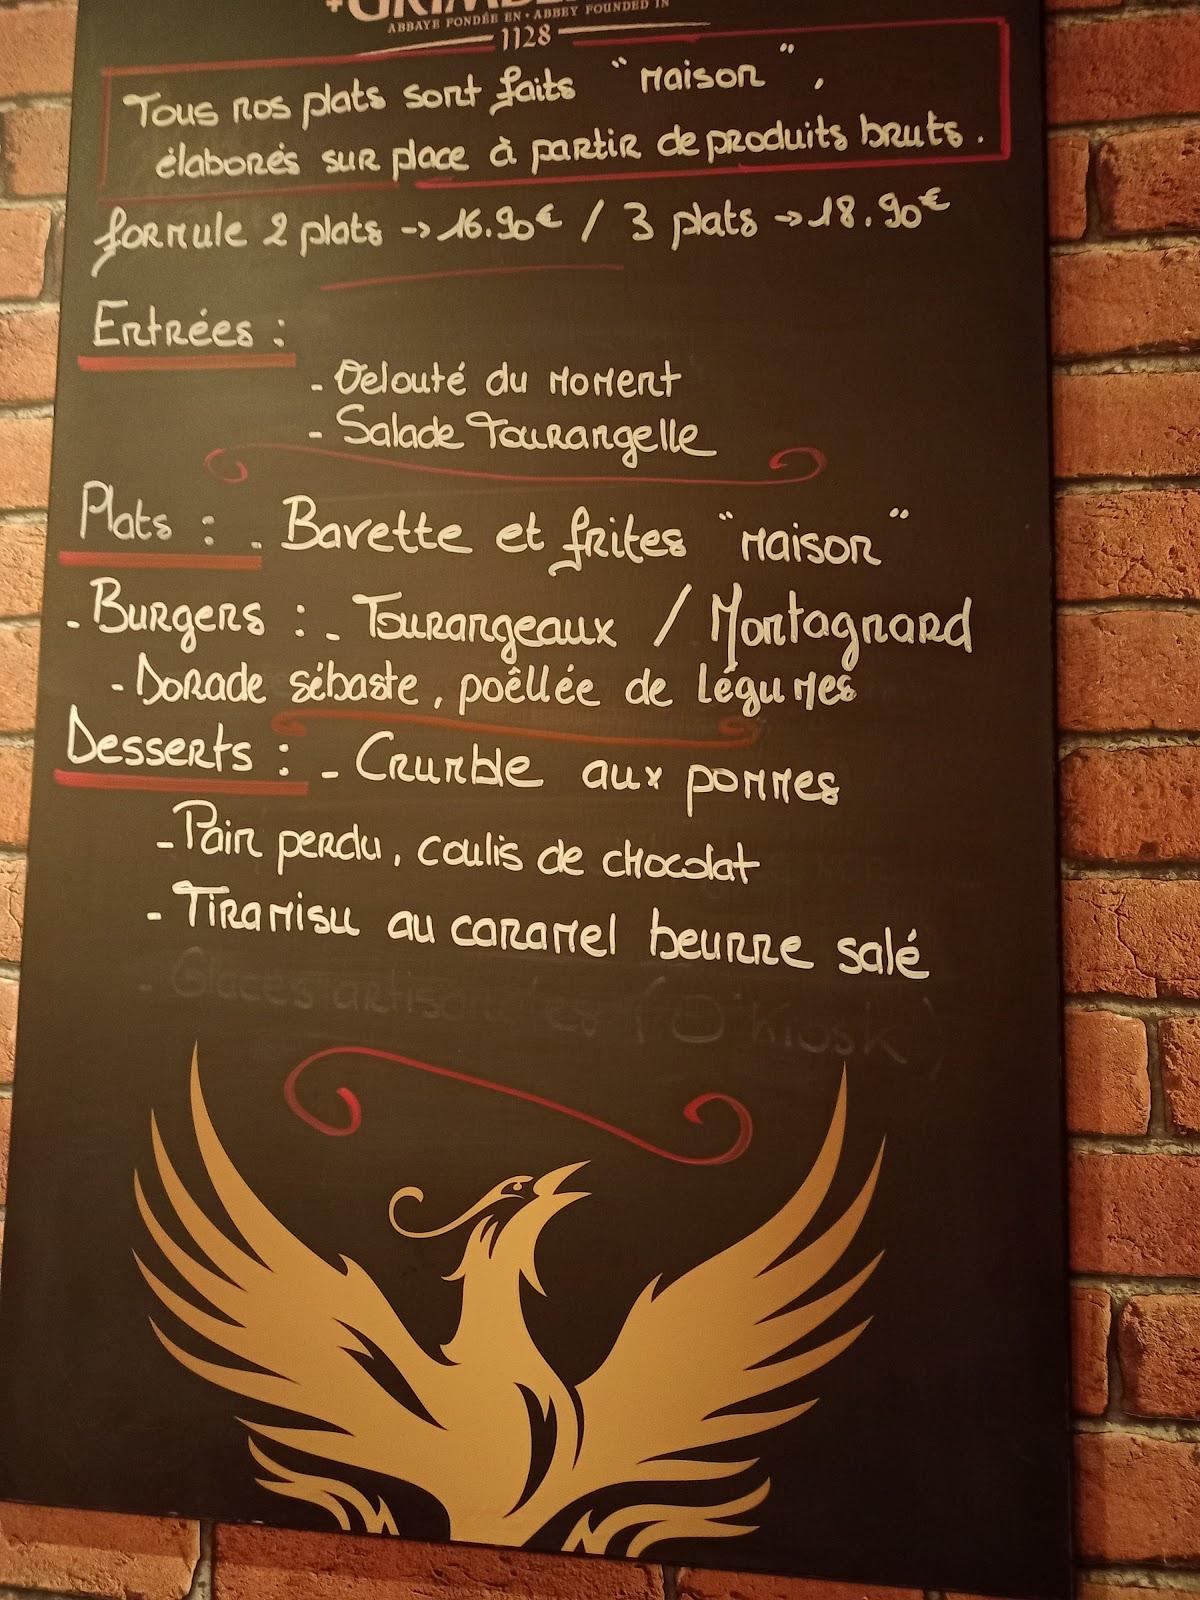 ABBAYE FONDÉE EN • ABBEY FOUNDED IN
1128
Tous nos plats sont faits "Maison",
élaborés sur place à partir de produits bruts.
formule 2 plats -> 16.90€ / 3 plats -> 18.90€
Entrées :
- Velouté du moment
- Salade Tourangelle
Plats : - Bavette et frites "Maison"
- Burgers : - Tourangeaux / Montagnard
- Dorade sébaste, poêllée de légumes
Desserts : - Crumble aux pommes
- Pain perdu, coulis de chocolat
- Tiramisu au caramel beurre salé
- Glaces artisanales (O'Kiosk)